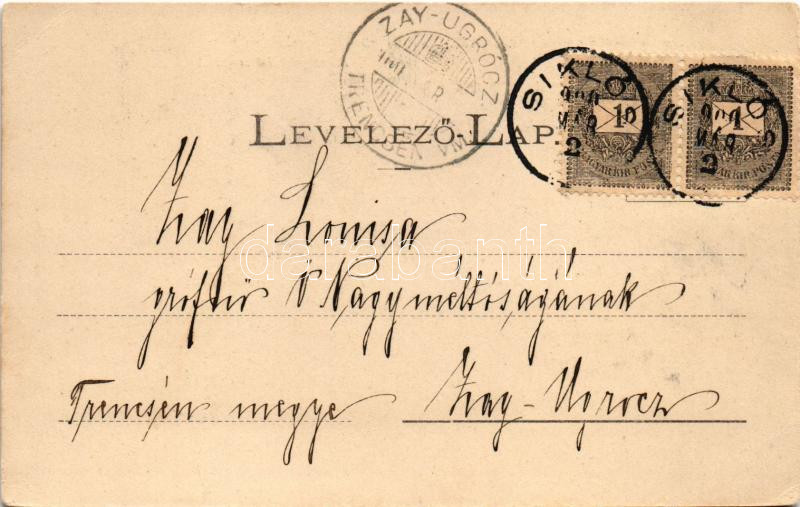 ZAY-UGRÓCZ
TRENCSÉN VM.
SIKLÓ
900
MÁR
2
SIKLÓ
900
MÁR
2
1
MAGYAR KIR. POSTA
LEVELEZŐ-LAP.
Zay Louisa
grófnő Ő Nagyméltóságának
Trencsén megye Zay-Ugrocz
darabanth